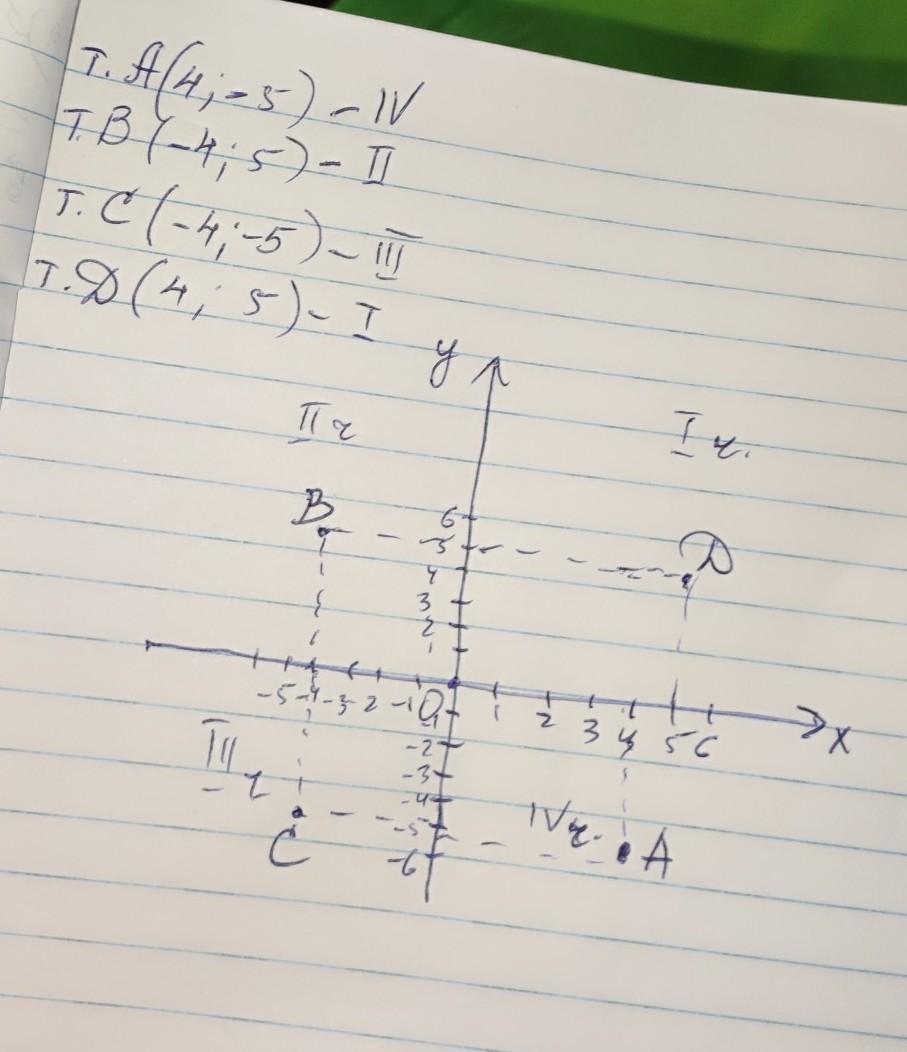 т. A(4; -5) - IV
т. B(-4; 5) - II
т. C(-4; -5) - III
т. D(4; 5) - I
y
II ч
I ч.
B
6
5
D
4
3
2
1
-5 -4 -3 2 -1 0 1 2 3 4 5 6 x
-1
-2
III ч
-3
-4
-5
IV ч.
C
-6
A